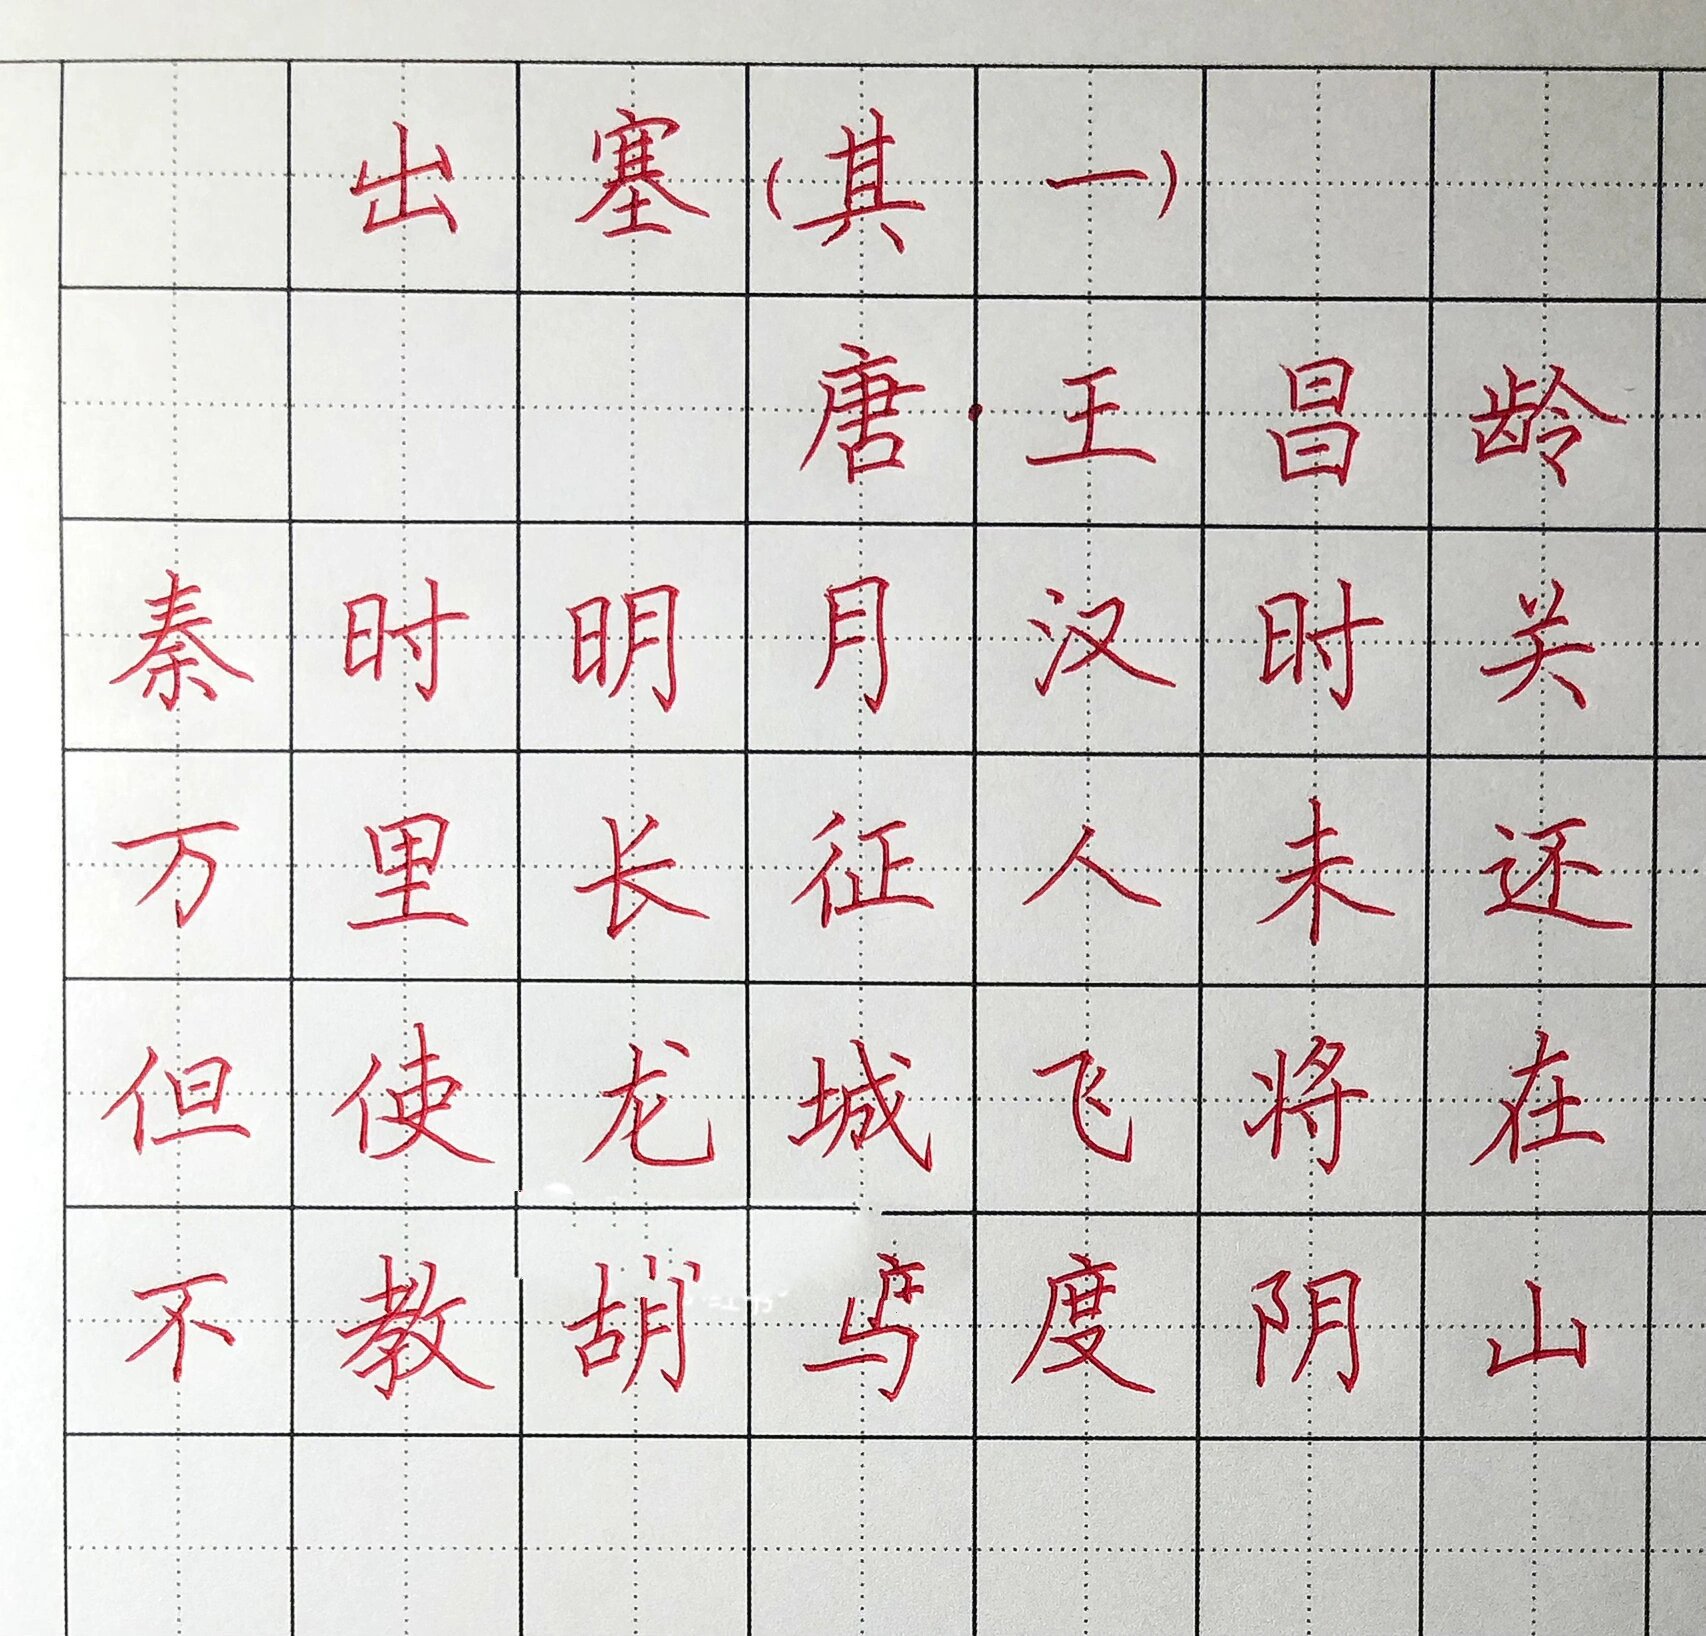 出塞(其一)
唐·王昌龄
秦时明月汉时关
万里长征人未还
但使龙城飞将在
不教胡度阴山